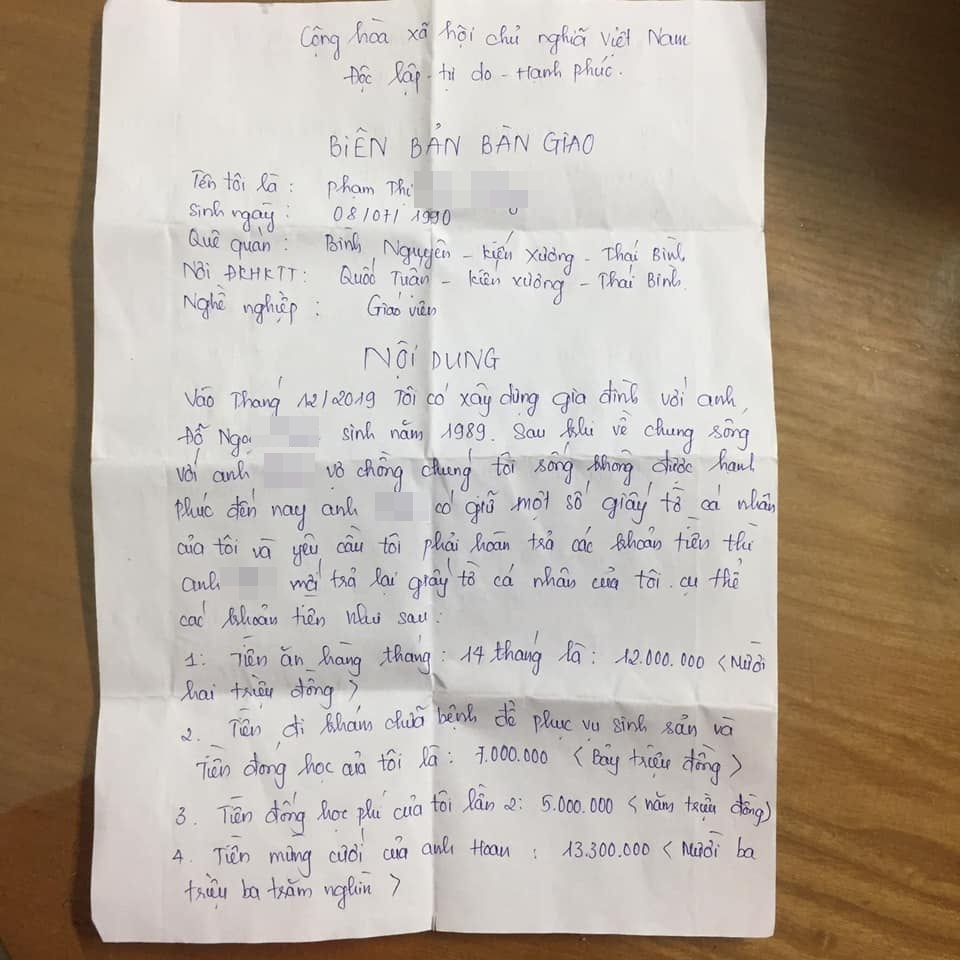 Cộng hòa xã hội chủ nghĩa Việt Nam
Độc lập - tự do - Hạnh phúc.
BIÊN BẢN BÀN GIAO
Tên tôi là : Phạm Thị
Sinh ngày : 08/07/1990
Quê quán : Bình Nguyên - Kiến Xương - Thái Bình
Nơi ĐKHKTT: Quốc Tuấn - Kiến Xương - Thái Bình.
Nghề nghiệp : Giáo viên
NỘI DUNG
Vào Tháng 12/2019 Tôi có xây dựng gia đình với anh
Đỗ Ngọ sinh năm 1989. Sau khi về chung sống
với anh vợ chồng chúng tôi sống không được hạnh
phúc đến nay anh có giữ một số giấy tờ cá nhân
của tôi và yêu cầu tôi phải hoàn trả các khoản tiền thì
anh mới trả lại giấy tờ cá nhân của tôi. cụ thể
các khoản tiền như sau:
1: Tiền ăn hàng tháng: 14 tháng là: 12.000.000 < Mười
hai triệu đồng >
2. Tiền đi khám chữa bệnh để phục vụ sinh sản và
Tiền đóng học của tôi là: 7.000.000 < Bảy triệu đồng >
3. Tiền đống học phí của tôi lần 2: 5.000.000 < năm triệu đồng)
4. Tiền mừng cưới của anh Hoan : 13.300.000 < Mười ba
triệu ba trăm nghìn >